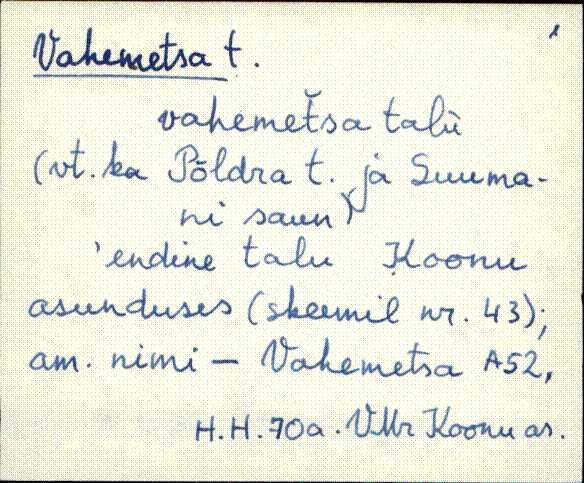 1
Vahemetsa t.
vahemeťsa talù
(vt. ka Põldra t. ja Suuma-
ni saun)
'endine talu Koonu
asunduses (skeemil nr. 43);
am. nimi – Vahemetsa A52,
H.H. 70a. VMr Koonu as.